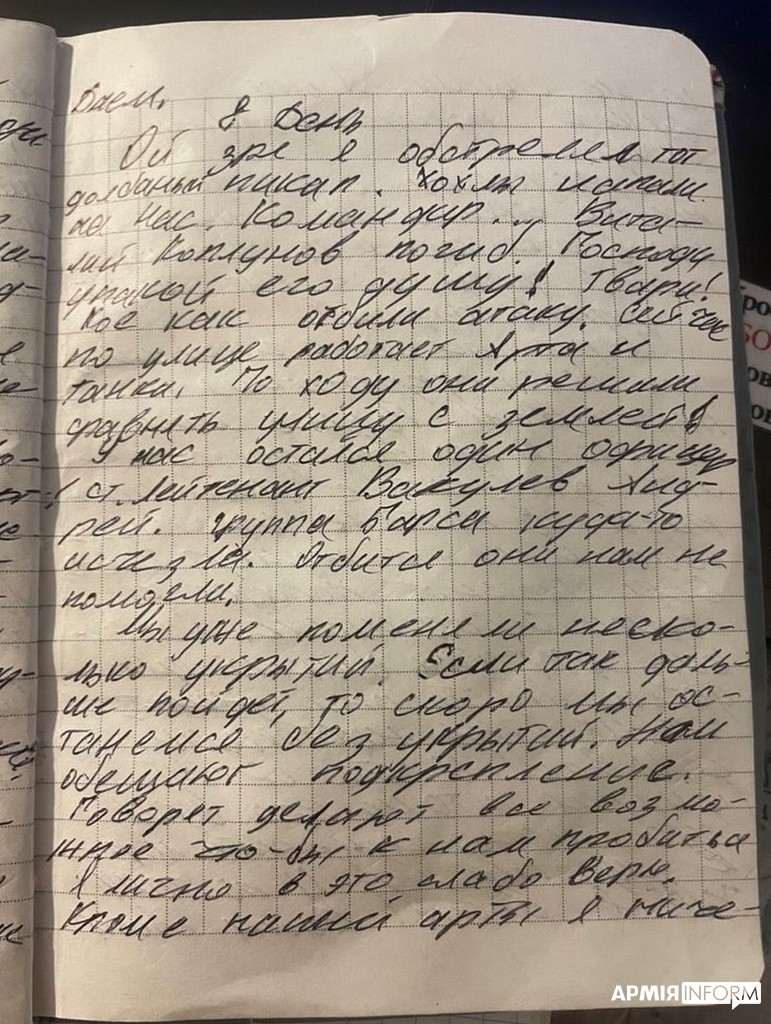 ваем.
8 День
Ой зря я обстрелял тот
долбаный пикап. Хохлы напали
на нас. Командир... Вита-
лий Коплунов погиб. Господи
упакой его душу! Твари!
Кое как отбили атаку. Сейчас
по улице работает Арта и
танки. По ходу они решили
сравнять улицу с землей!
У нас остался один офицер
ст. лейтенант Вакулев Анд-
рей. группа Барса куда-то
исчезла. Отбится они нам не
помогли.
Мы уже поменяли неско-
лько укрытий. Если так даль-
ше пойдет, то скоро мы ос-
танемся без укрытий. Нам
обещают подкрепление.
Говорят делают все возмо-
жное что-бы к нам пробиться
Я лично в это слабо верю.
Кроме нашей арты я ниче-
АРМІЯINFORM